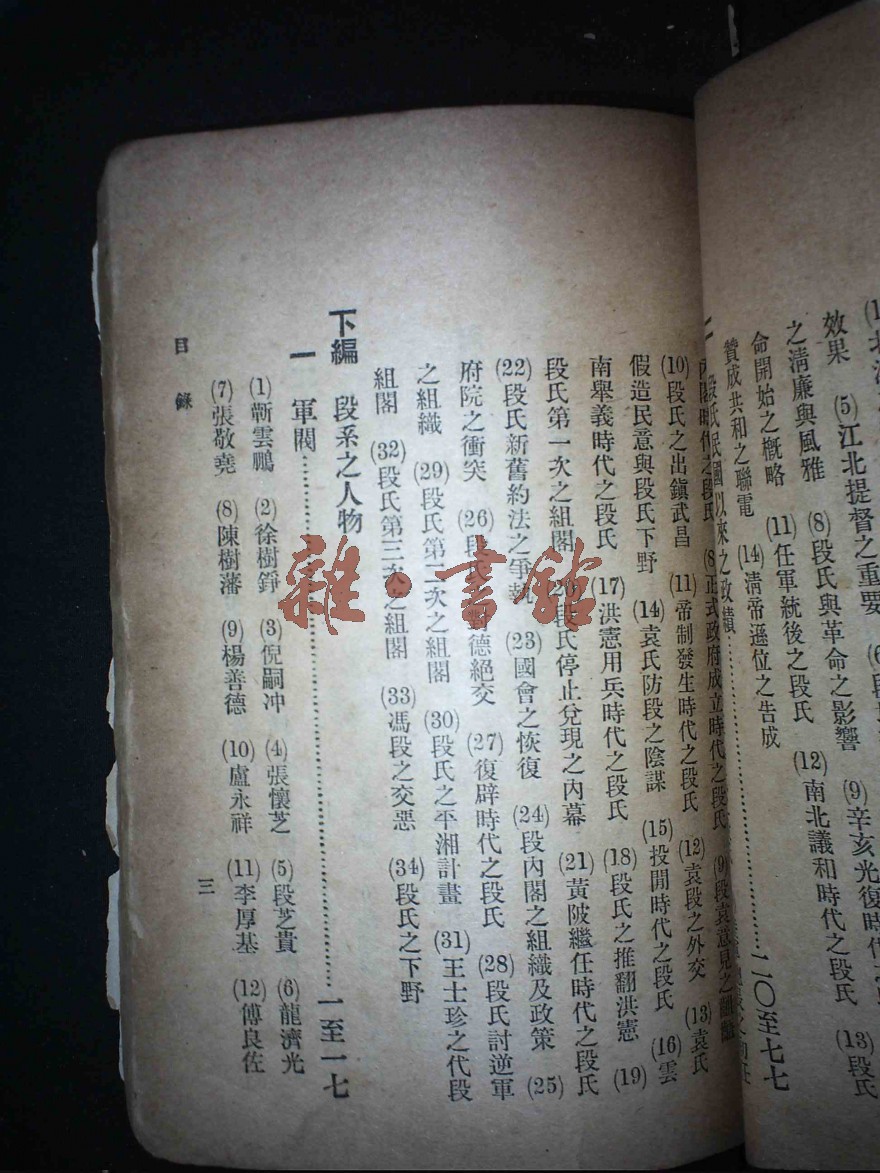 效果　(5)江北提督之重要
之淸廉與風雅　(8)段氏與革命之影響　(9)辛亥光復時代
命開始之槪略　(11)任軍統後之段氏　(12)南北議和時代之段氏　(13)段氏
贊成共和之聯電　(14)淸帝遜位之告成
二　段氏民國以來之政績……二〇至七七
(8)正式政府成立時代之段氏　(9)段袁意見之
(10)段氏之出鎭武昌　(11)帝制發生時代之段氏　(12)袁段之外交　(13)袁氏
假造民意與段氏下野　(14)袁氏防段之陰謀　(15)投閒時代之段氏　(16)雲
南舉義時代之段氏　(17)洪憲用兵時代之段氏　(18)段氏之推翻洪憲　(19)
段氏第一次之組閣　(20)段氏停止兌現之內幕　(21)黃陂繼任時代之段氏
(22)段氏新舊約法之爭執　(23)國會之恢復　(24)段內閣之組織及政策　(25)
府院之衝突　(26)段氏對德絕交　(27)復辟時代之段氏　(28)段氏討逆軍
之組織　(29)段氏第二次之組閣　(30)段氏之平湘計畫　(31)王士珍之代段
組閣　(32)段氏第三次之組閣　(33)馮段之交惡　(34)段氏之下野
下編　段系之人物
一　軍閥……一至一七
(1)靳雲鵬　(2)徐樹錚　(3)倪嗣冲　(4)張懷芝　(5)段芝貴　(6)龍濟光
(7)張敬堯　(8)陳樹藩　(9)楊善德　(10)盧永祥　(11)李厚基　(12)傅良佐
目錄
三
雜·書館